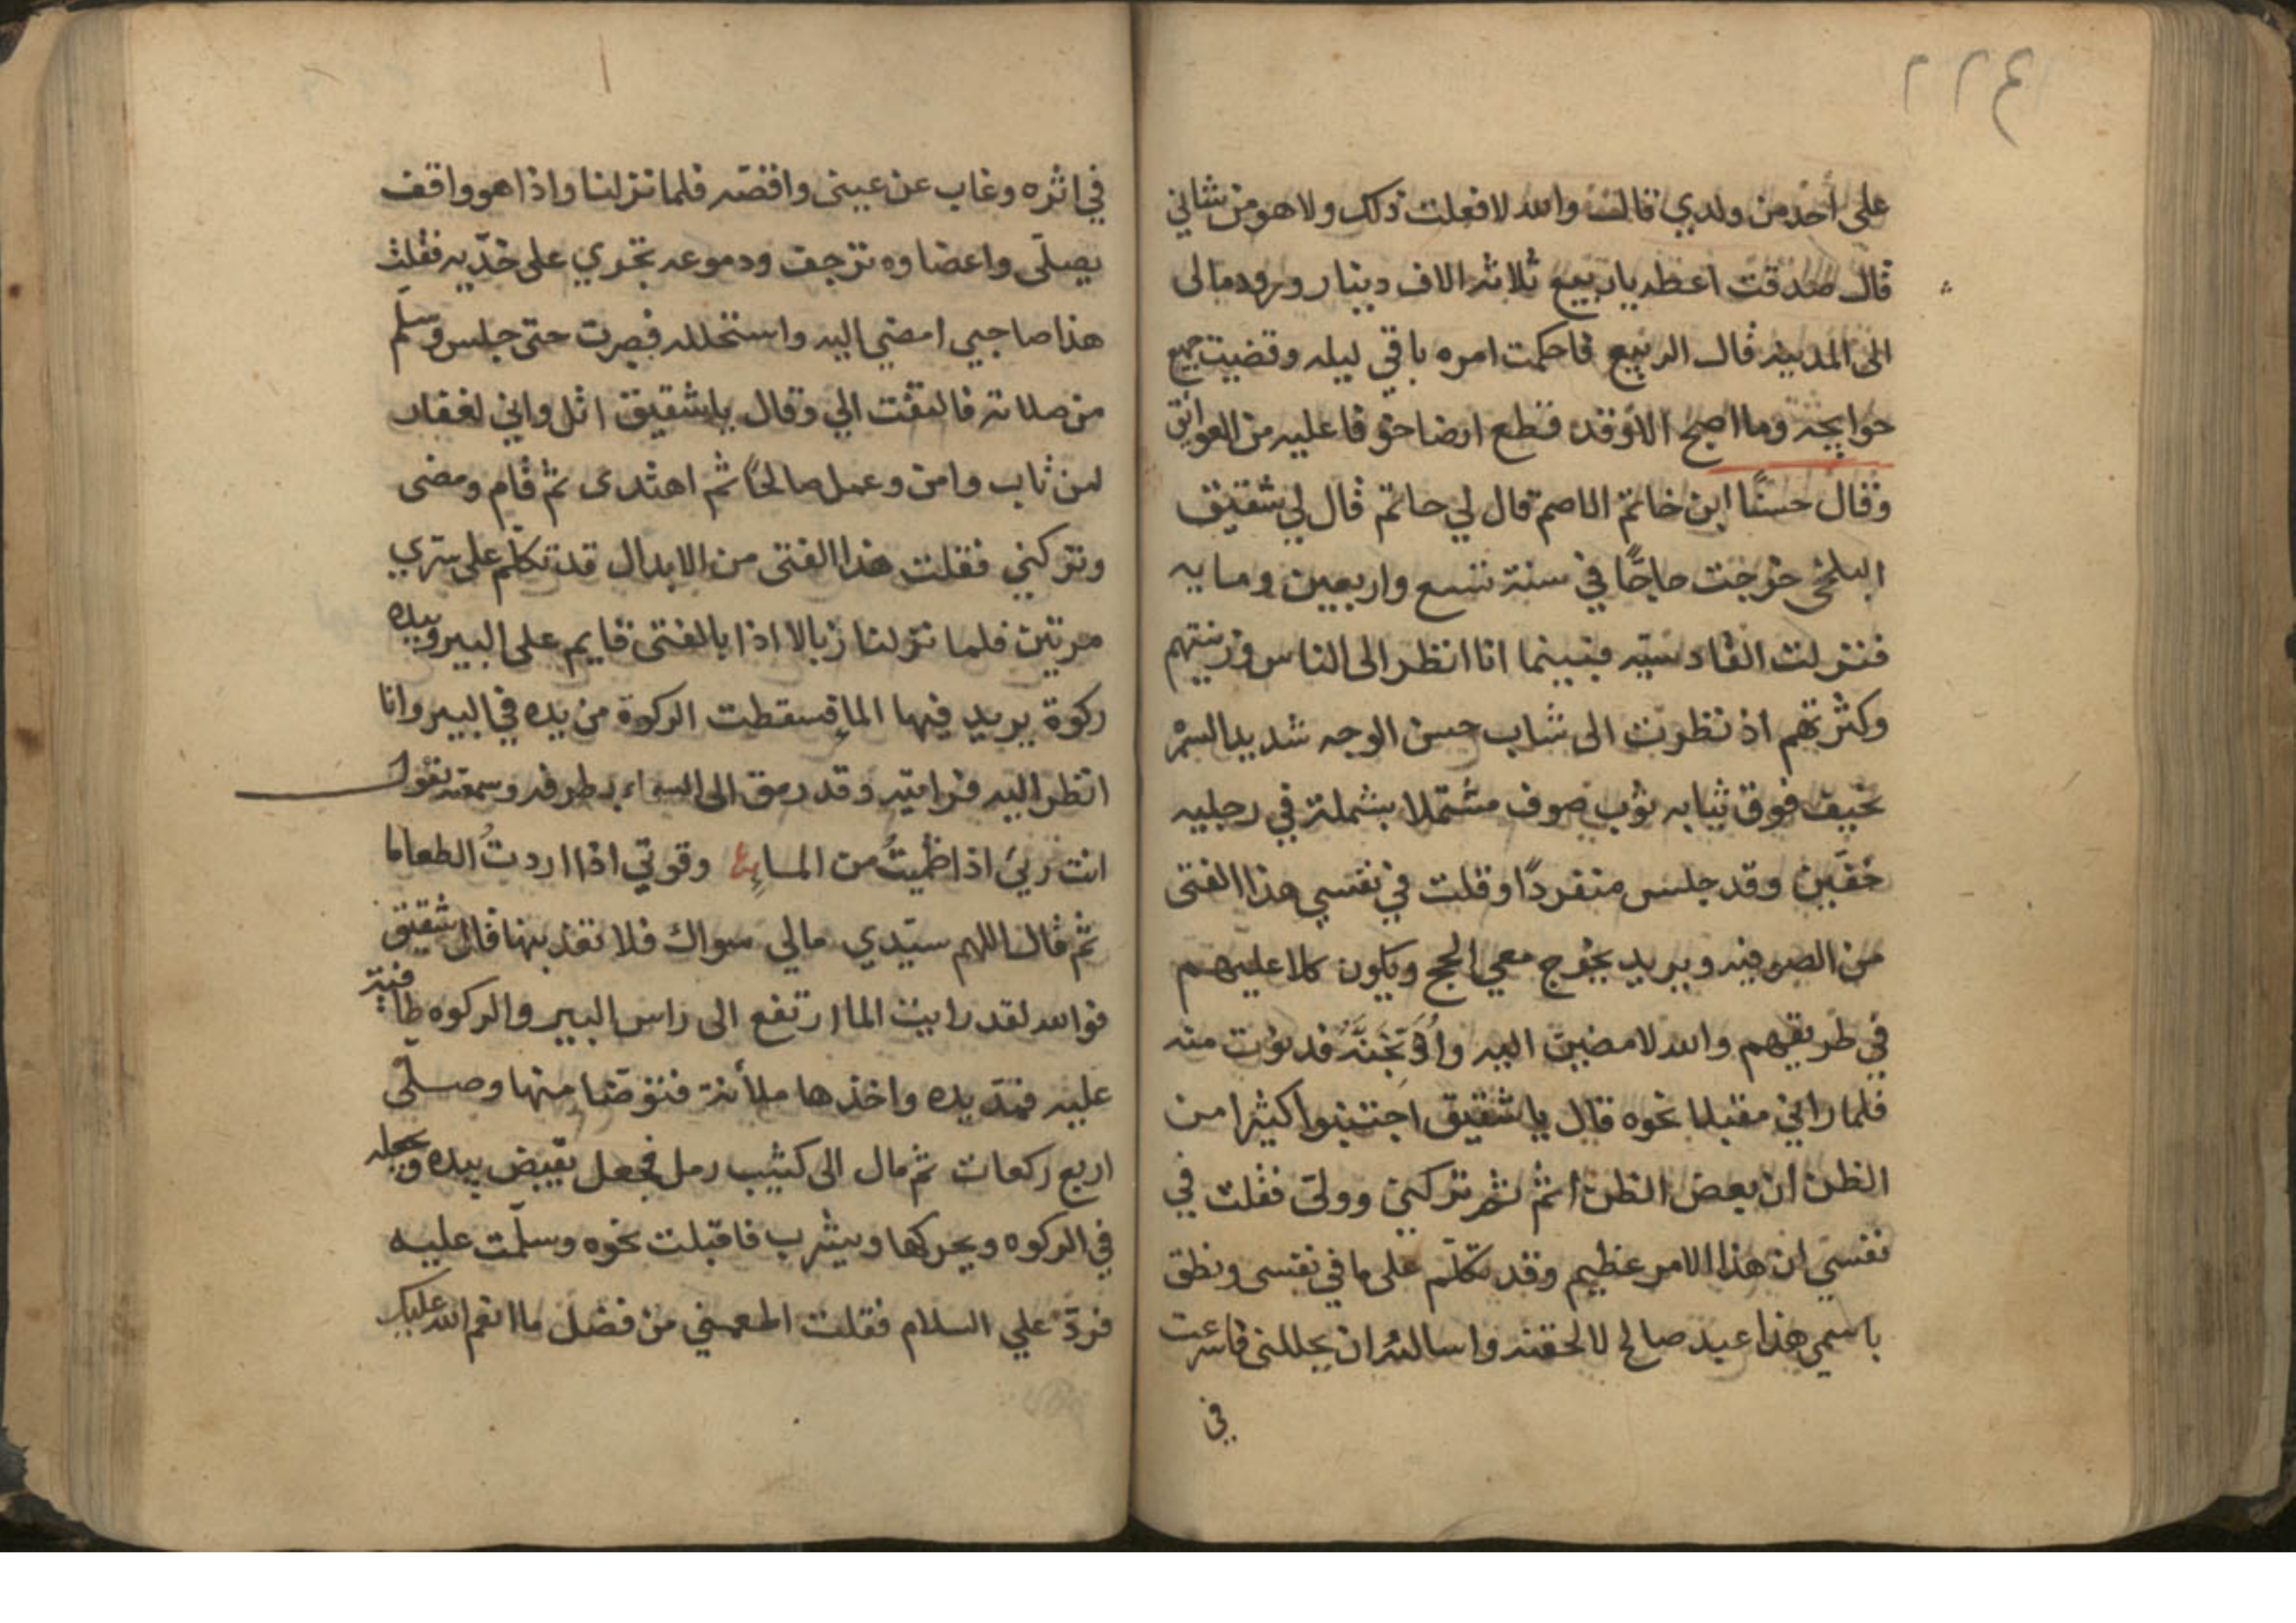 ٢٢٤
على احد من ولدي قال والله لا فعلت ذلك ولا هو من شاني
قال صدقت اعطه يا ربيع ثلاثة الاف دينار ورده الى
الى المدينه قال الربيع فاحكمت امره باقي ليله وقضيت جميع
حوايجه وما اصبح الا وقد قطع ارضا خوفا عليه من العوايق
وقال حسنا ابن خاتم الاصم قال لي حاتم قال لي شقيق
البلخي خرجت حاجّا في سنة تسع واربعين ومايه
فنزلت القادسيّه فبينما انا انظر الى الناس وزينتهم
وكثرتهم اذ نظرت الى شاب حسن الوجه شديد السمر
نحيف فوق ثيابه ثوب صوف مشتملا بشملة في رجليه
خفّين وقد جلس منفردًا وقلت في نفسي هذا الفتى
من الصوفيه ويريد يخرج معي الحج ويكون كلا عليهم
في طريقهم والله لامضين اليه واُوَبِّخَنَّهُ فدنوت منه
فلما راني مقبلا نحوه قال يا شقيق اجتنبوا كثيرا من
الظن ان بعض الظن اثم ثم تركني وولّى فقلت في
نفسي ان هذا الامر عظيم وقد تكلّم على ما في نفسي ونطق
باسمي هذا عبد صالح لالحقنه واسالنه ان يحللني فاسرعت
في
في اثره وغاب عن عيني واقصه فلما نزلنا واذا هو واقف
يصلّى واعضاوه ترجف ودموعه تجري على خدّيه فقلت
هذا صاحبي امضي اليه واستحلله فصبرت حتى جلس وسلّم
من صلاته فالتفت الي وقال يا شقيق اتل واني لغفار
لمن تاب وامن وعمل صالحًا ثم اهتدى ثم قام ومضى
وتركني فقلت هذا الفتى من الابدال قد تكلّم على سرّي
مرتين فلما نزلنا زبالا اذا بالفتى قايم على البير وبيده
ركوة يريد فيها الما فسقطت الركوة من يده في البير وانا
انظر اليه فرايته وقد رمق الى السماء بطرفه وسمعته يقول
انت ريي اذا ظميتُ من الماء وقوتي اذا اردتُ الطعاما
ثم قال اللهم سيّدي مالي سواك فلا تعذبنها قال شقيق
فوالله لقد رايت الما ارتفع الى راس البير والركوه طافية
عليه فمدّ يده واخذها ملأنة فتوضّا منها وصلّى
اربع ركعات ثم مال الى كثيب رمل فجعل يقبض بيده ويجعله
في الركوه ويحركها ويشرب فاقبلت نحوه وسلّمت عليه
فردّ علي السلام فقلت اطعمني من فضل ما انعم الله عليك